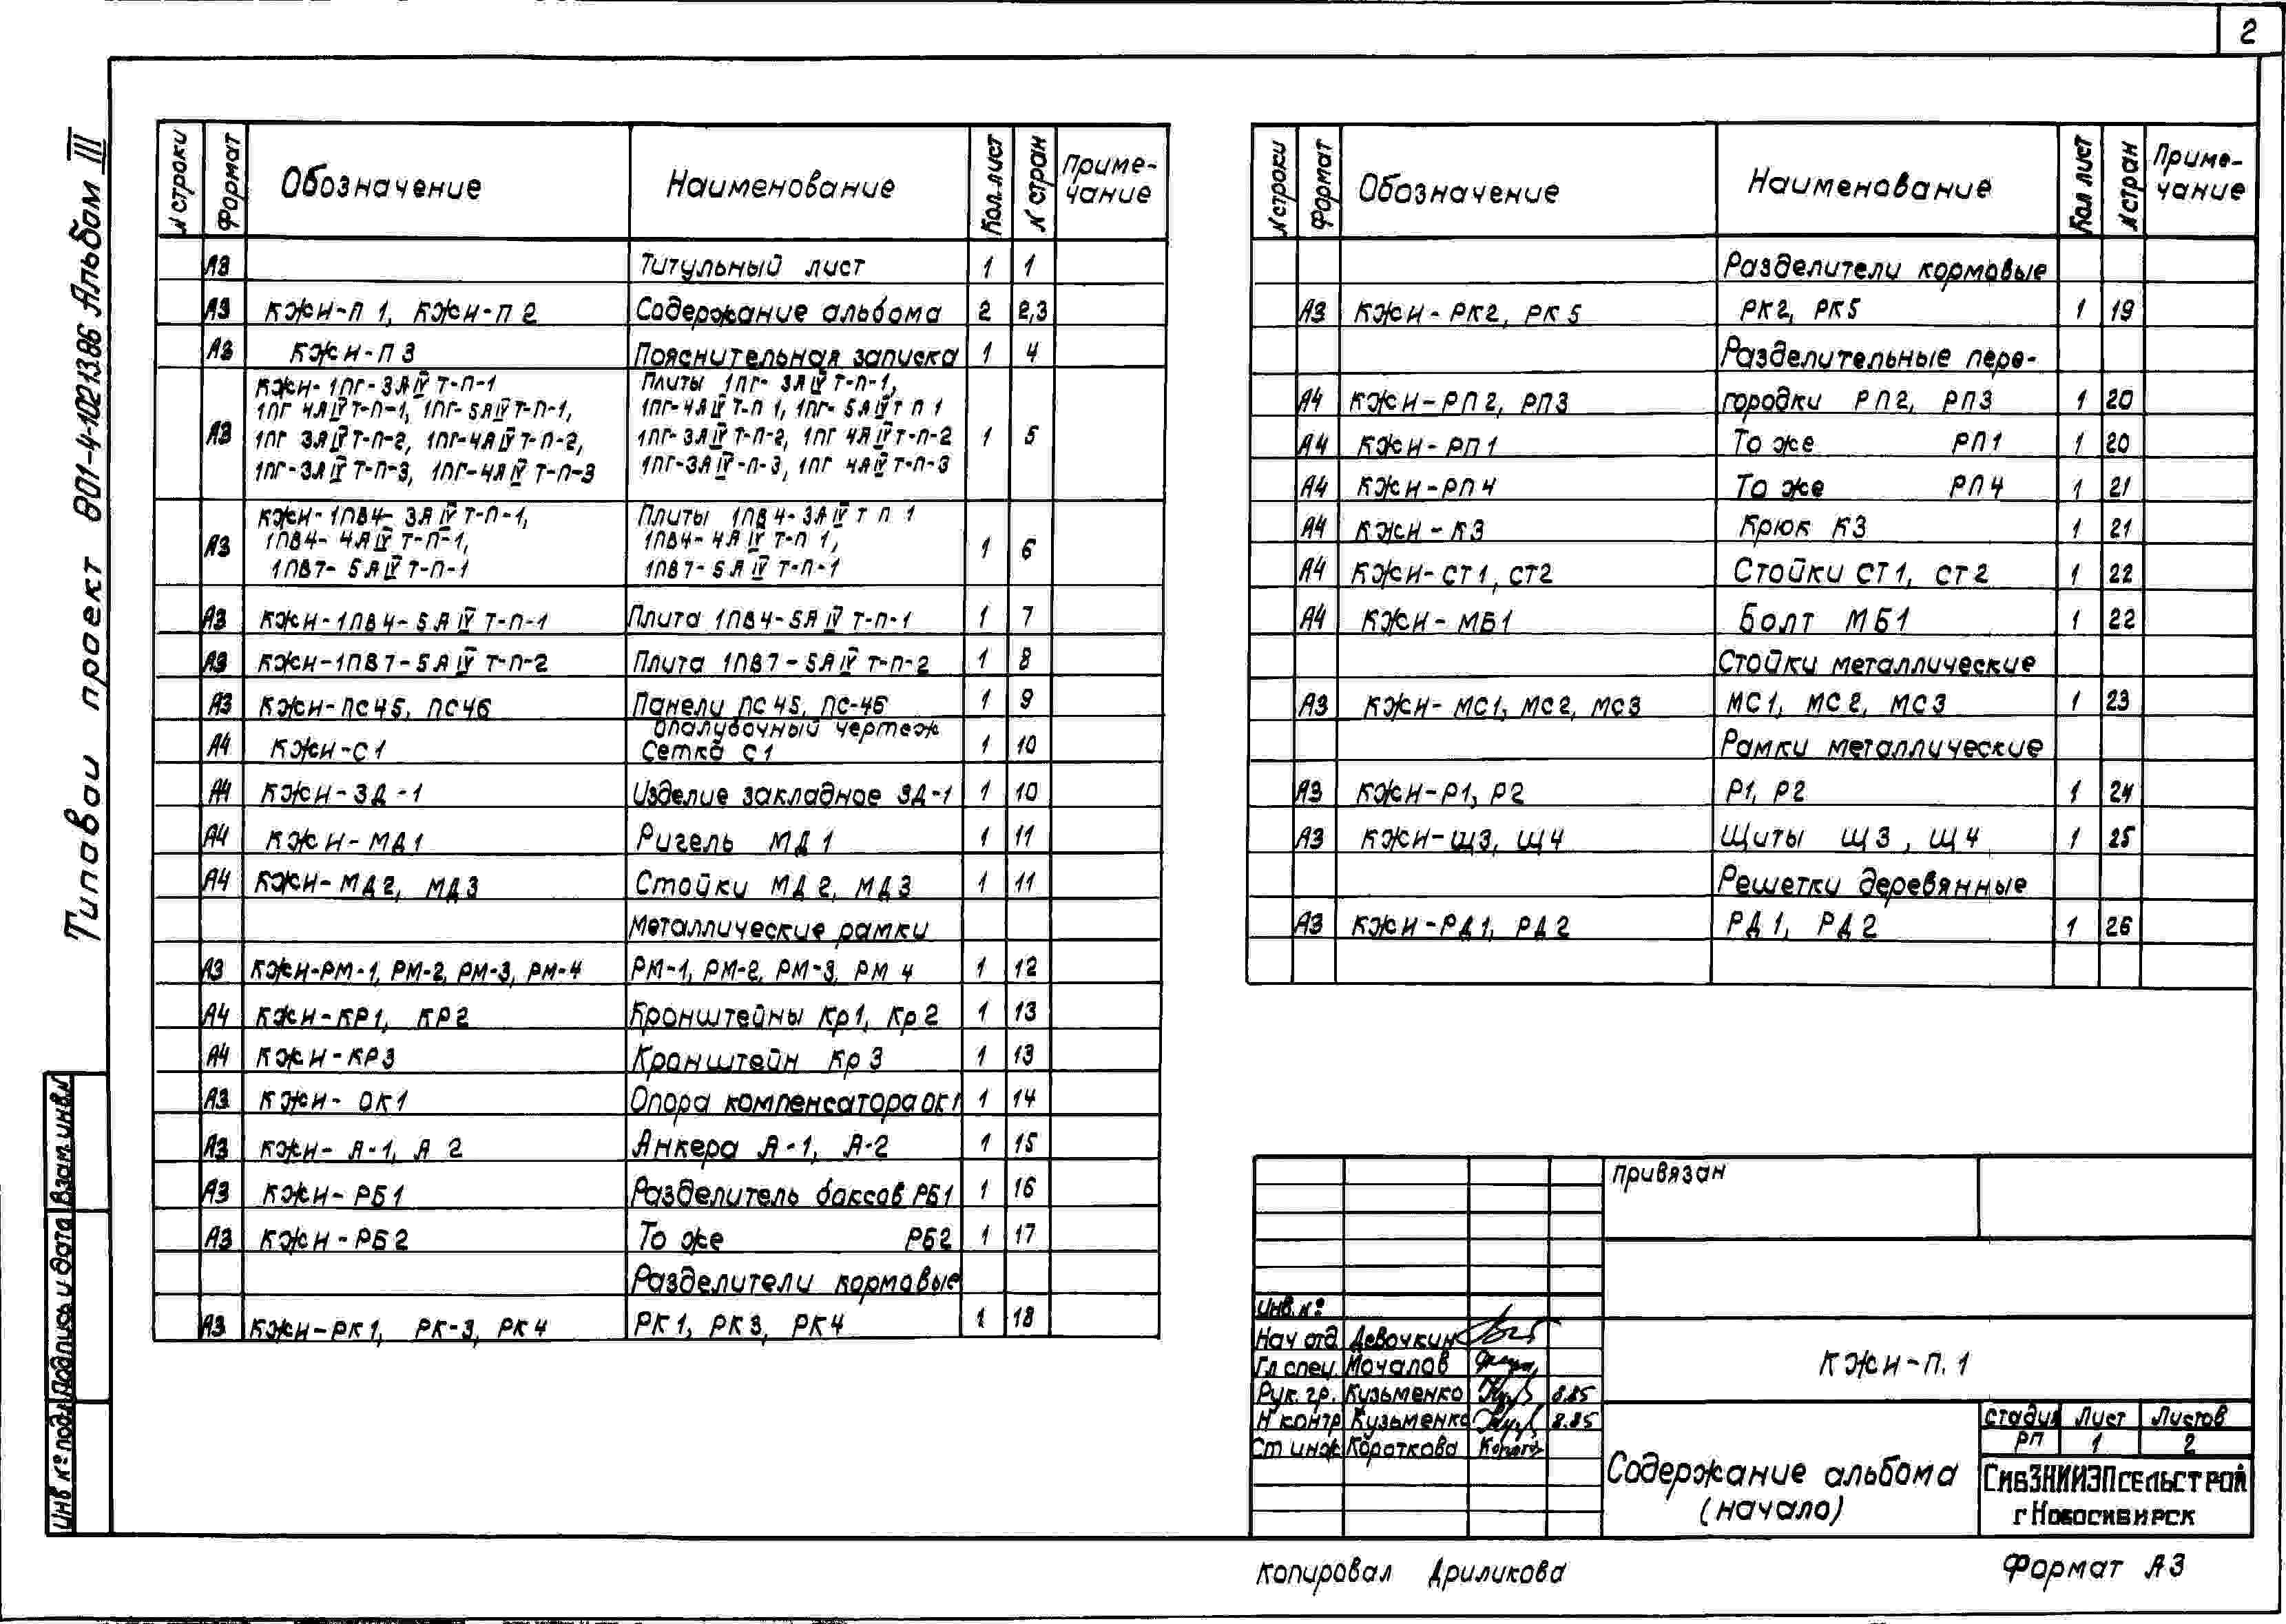 2
Типовой проект 801-4-102.13.86 Альбом III
N строки Формат Обозначение Наименование Кол. лист N стран Приме-
чание
А3 Титульный лист 1 1
А3 КЖИ-П 1, КЖИ-П 2 Содержание альбома 2 2,3
А3 КЖИ-П 3 Пояснительная записка 1 4
КЖИ-1ПГ-3АIVТ-П-1 Плиты 1ПГ-3АIVТ-П-1,
1ПГ 4АIVТ-П-1, 1ПГ-5АIVТ-П-1, 1ПГ-4АIVТ-П 1, 1ПГ-5АIVТ П 1
А3 1ПГ 3АIVТ-П-2, 1ПГ-4АIVТ-П-2, 1ПГ-3АIVТ-П-2, 1ПГ 4АIVТ-П-2 1 5
1ПГ-3АIVТ-П-3, 1ПГ-4АIVТ-П-3 1ПГ-3АIV-П-3, 1ПГ 4АIVТ-П-3
КЖИ-1ПВ4-3АIVТ-П-1, Плиты 1ПВ4-3АIVТ П 1
1ПВ4-4АIVТ-П-1, 1ПВ4-4АIVТ-П 1,
А3 1ПВ7-5АIVТ-П-1 1ПВ7-5АIVТ-П-1 1 6
А3 КЖИ-1ПВ4-5АIVТ-П-1 Плита 1ПВ4-5АIVТ-П-1 1 7
А3 КЖИ-1ПВ7-5АIVТ-П-2 Плита 1ПВ7-5АIVТ-П-2 1 8
А3 КЖИ-ПС45, ПС46 Панели ПС45, ПС-46 1 9
опалубочный чертеж
А4 КЖИ-С1 Сетка С1 1 10
А4 КЖИ-ЗД-1 Изделие закладное ЗД-1 1 10
А4 КЖИ-МД1 Ригель МД1 1 11
А4 КЖИ-МД2, МД3 Стойки МД2, МД3 1 11
Металлические рамки
А3 КЖИ-РМ-1, РМ-2, РМ-3, РМ-4 РМ-1, РМ-2, РМ-3, РМ 4 1 12
А4 КЖИ-КР1, КР2 Кронштейны Кр1, Кр2 1 13
А4 КЖИ-КР3 Кронштейн Кр3 1 13
А3 КЖИ-ОК1 Опора компенсатора ОК1 1 14
А3 КЖИ-А-1, А 2 Анкера А-1, А-2 1 15
А3 КЖИ-РБ1 Разделитель боксов РБ1 1 16
А3 КЖИ-РБ2 То же РБ2 1 17
Разделители кормовые
А3 КЖИ-РК1, РК-3, РК4 РК1, РК3, РК4 1 18
N строки Формат Обозначение Наименование Кол лист N стран Приме-
чание
Разделители кормовые
А3 КЖИ-РК2, РК5 РК2, РК5 1 19
Разделительные пере-
А4 КЖИ-РП2, РП3 городки РП2, РП3 1 20
А4 КЖИ-РП1 То же РП1 1 20
А4 КЖИ-РП4 То же РП4 1 21
А4 КЖИ-К3 Крюк К3 1 21
А4 КЖИ-СТ1, СТ2 Стойки СТ1, СТ2 1 22
А4 КЖИ-МБ1 Болт МБ1 1 22
Стойки металлические
А3 КЖИ-МС1, МС2, МС3 МС1, МС2, МС3 1 23
Рамки металлические
А3 КЖИ-Р1, Р2 Р1, Р2 1 24
А3 КЖИ-Щ3, Щ4 Щиты Щ3, Щ4 1 25
Решетки деревянные
А3 КЖИ-РД1, РД2 РД1, РД2 1 26
Привязан
Инв. №
Нач отд Девочкин
Гл спец. Мочалов
Рук. гр. Кузьменко 8.85
Н контр Кузьменко 8.85
Ст инж Короткова
КЖИ-П.1
Содержание альбома
(начало)
стадия Лист Листов
РП 1 2
СибЗНИИЭПсельстрой
г Новосибирск
Инв № подл Подпись и дата Взам. инв. N
Копировал Дриликова
Формат А3